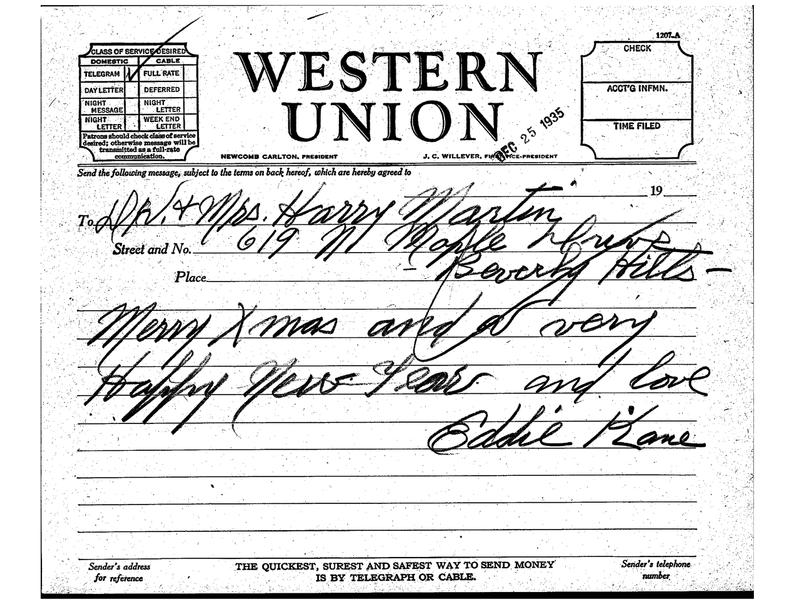 1207-A
CLASS OF SERVICE DESIRED
DOMESTIC CABLE
TELEGRAM FULL RATE
DAY LETTER DEFERRED
NIGHT MESSAGE NIGHT LETTER
NIGHT LETTER WEEK END LETTER
Patrons should check class of service
desired; otherwise message will be
transmitted as a full-rate
communication.
WESTERN
UNION
DEC 25 1935
CHECK
ACCT'G INFMN.
TIME FILED
NEWCOMB CARLTON, PRESIDENT J. C. WILLEVER, FIRST VICE-PRESIDENT
Send the following message, subject to the terms on back hereof, which are hereby agreed to
19
To Dr. & Mrs. Harry Martin
Street and No. 619 N Maple Drive
Place Beverly Hills-
Merry Xmas and a very
Happy New Year and love
Eddie Kane
Sender's address
for reference
THE QUICKEST, SUREST AND SAFEST WAY TO SEND MONEY
IS BY TELEGRAPH OR CABLE.
Sender's telephone
number